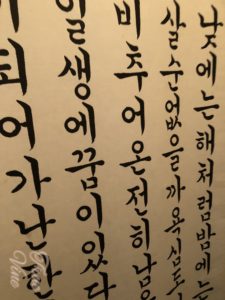 낮에는해처럼밤에는
살순없을까욕심도
비추어온전히남을
일생에꿈이있다
되어가난한